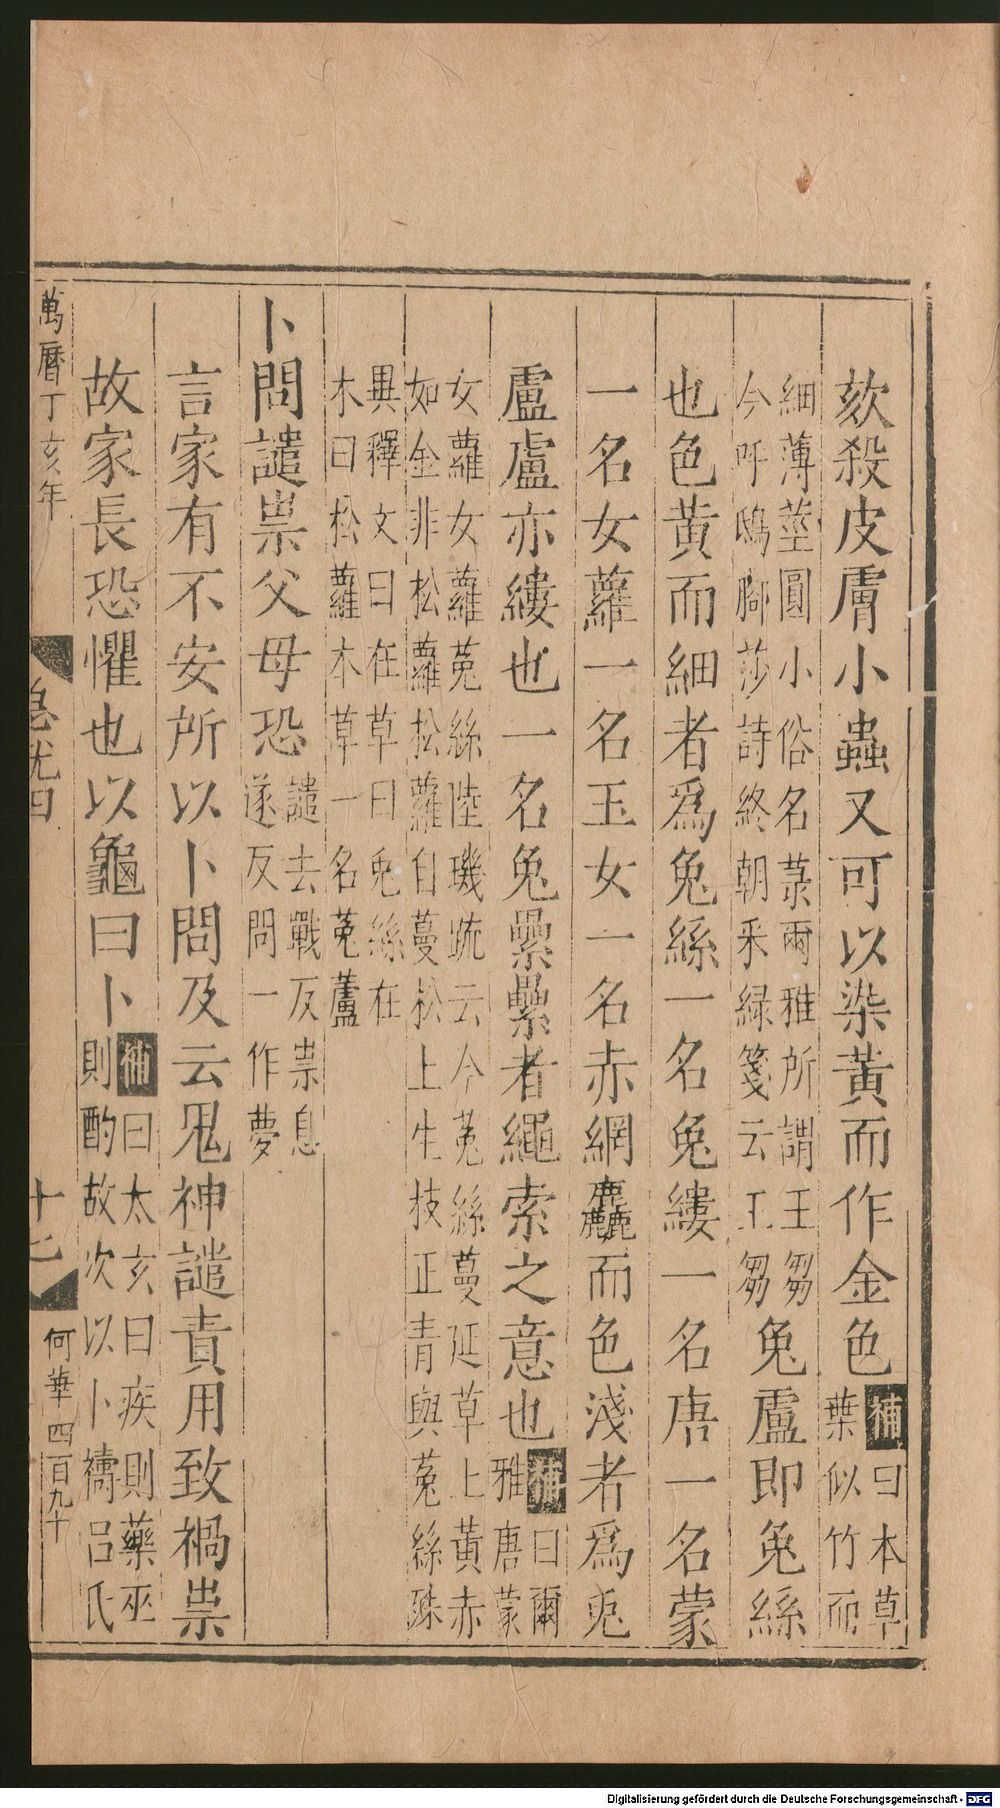 欬殺皮膚小蟲又可以染黃而作金色補曰本草葉似竹而
細薄莖圓小俗名菉爾雅所謂王芻今呼鴟腳莎詩終朝采緑箋云王芻兔盧即兔絲
也色黃而細者爲兔絲一名兔縷一名唐一名蒙
一名女蘿一名玉女一名赤網麤而色淺者爲兎
盧盧亦縷也一名兔纍纍者繩索之意也補曰爾雅唐蒙
女蘿女蘿菟絲陸璣疏云今菟絲蔓延草上黃赤如金非松蘿松蘿自蔓松上生技正青與菟絲殊
異釋文曰在草曰兔絲在木曰松蘿本草一名菟蘆
卜問譴祟父母恐譴去戰反祟息遂反問一作夢
言家有不安所以卜問及云鬼神譴責用致禍祟
故家長恐懼也以龜曰卜補曰太亥曰疾則藥巫則酌故次以卜禱呂氏
萬曆丁亥年
急就四
十七
何華四百九十
Digitalisierung gefördert durch die Deutsche Forschungsgemeinschaft - DFG